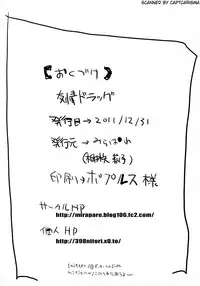 SCANNED BY CAPTCARISMA
【おくづけ】
発行日→2011/12/31
発行元→みらぱれ
印刷はポプルス様
サークルHP
http://mirapare.blog106.fc2.com/
個人HP
http://398niteri.x0.to/